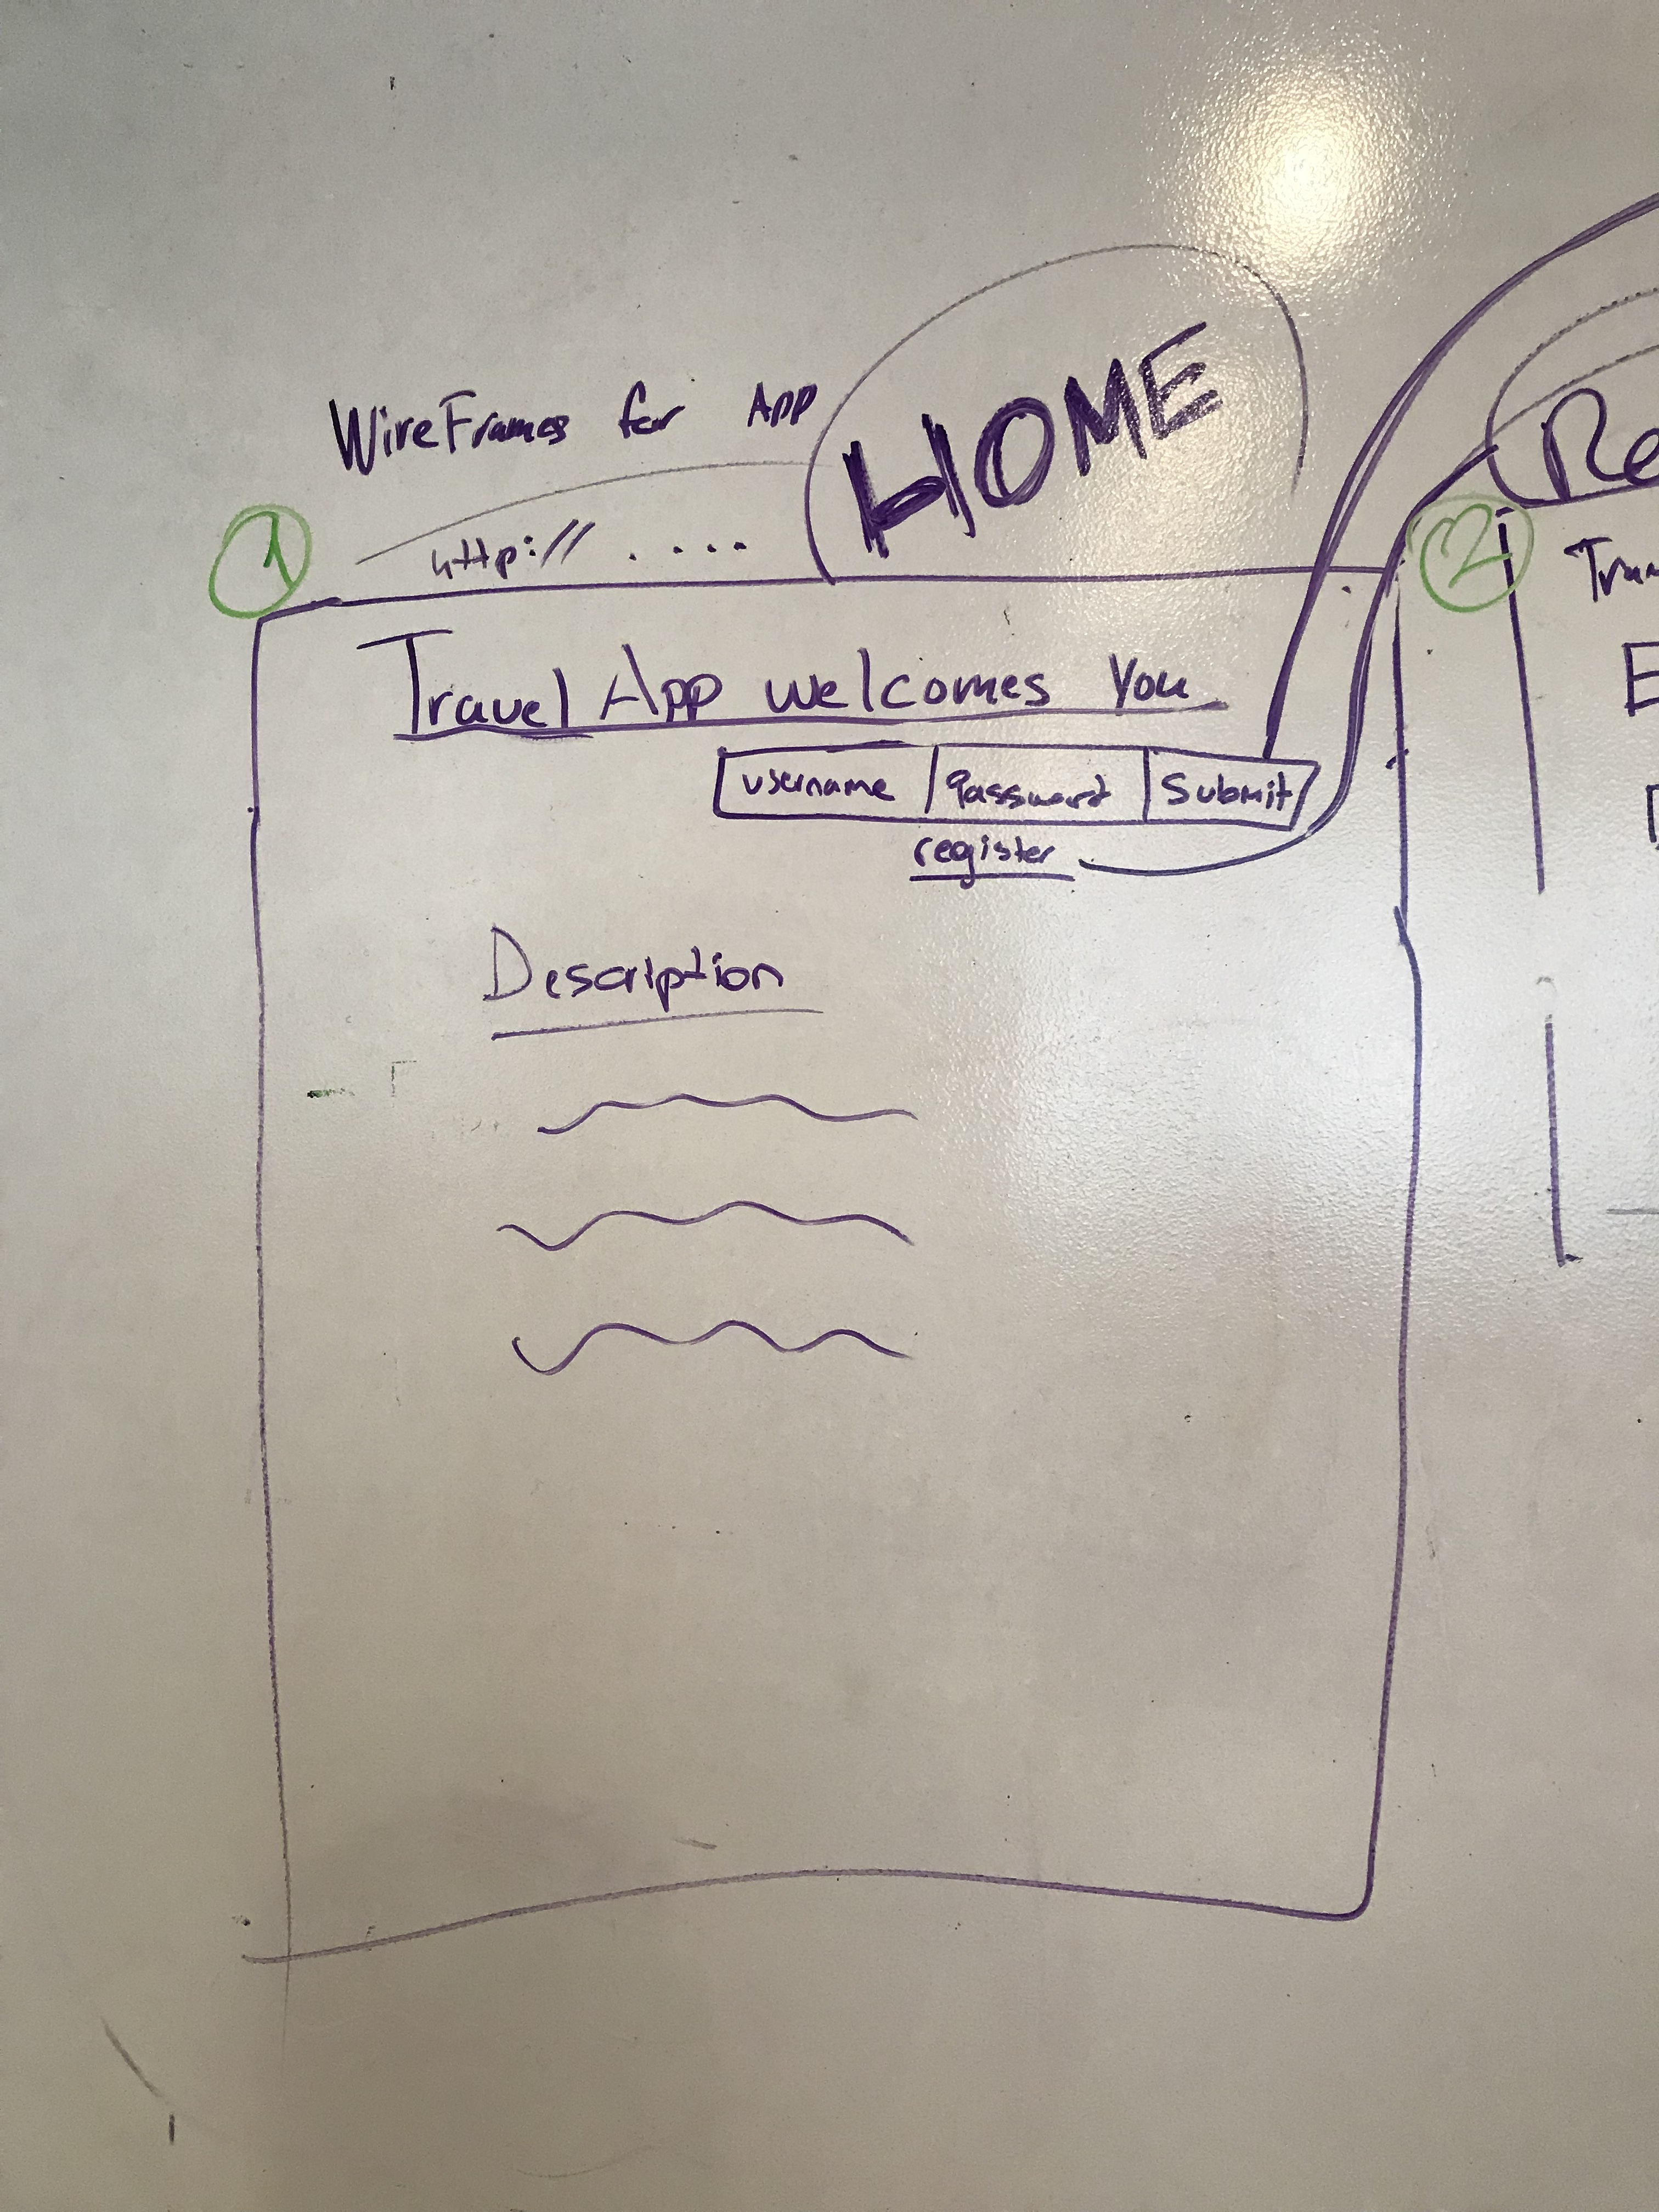 WireFrames for App
HOME
1
http:// . . . .
Travel App welcomes You
username Password Submit
register
Description
2